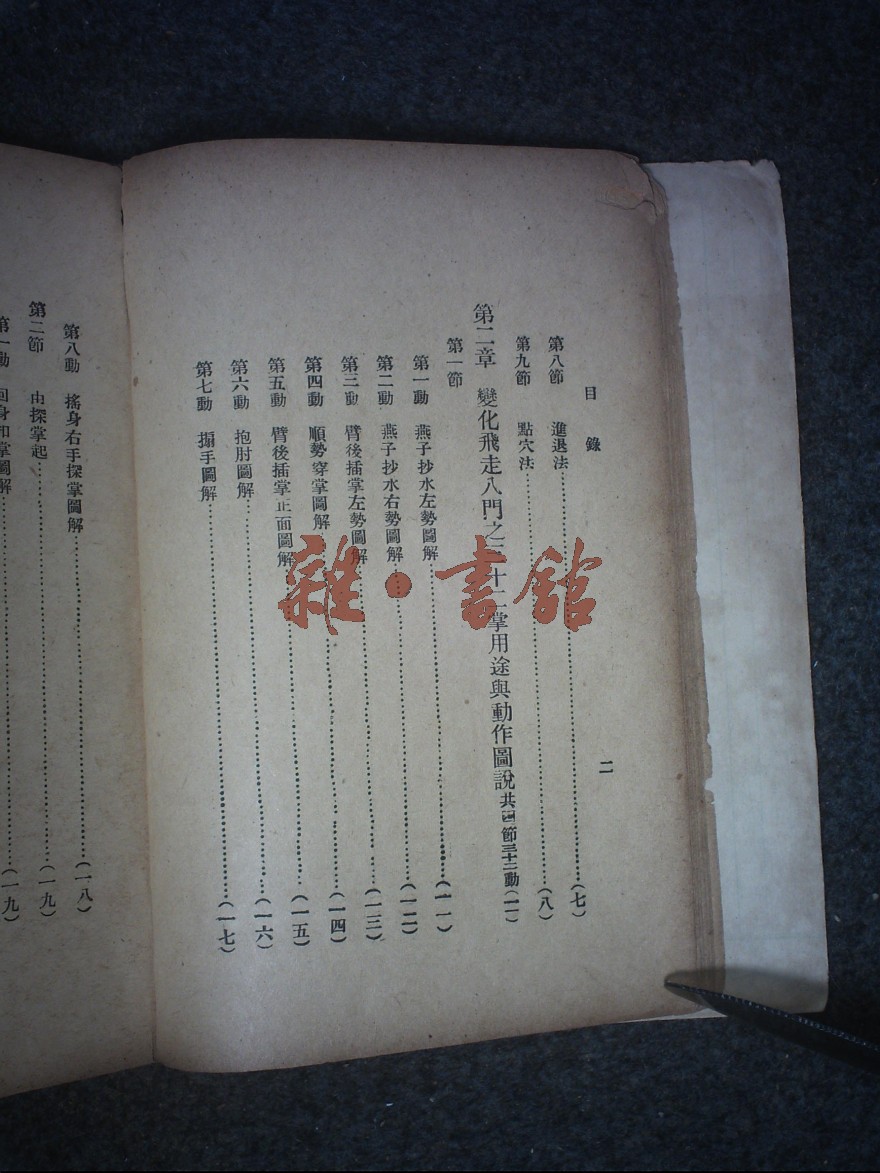 目錄
二
第八節 進退法(七)
第九節 點穴法(八)
第二章 變化飛走八門之三十二掌用途與動作圖說共四節三十二動(一一)
第一節
第一動 燕子抄水左勢圖解(一一)
第二動 燕子抄水右勢圖解(一二)
第三動 臂後插掌左勢圖解(一三)
第四動 順勢穿掌圖解(一四)
第五動 臂後插掌正面圖解(一五)
第六動 抱肘圖解(一六)
第七動 搨手圖解(一七)
第八動 搖身右手探掌圖解(一八)
第二節 由探掌起(一九)
第一動 回身扣掌圖解(一九)
雜·書館